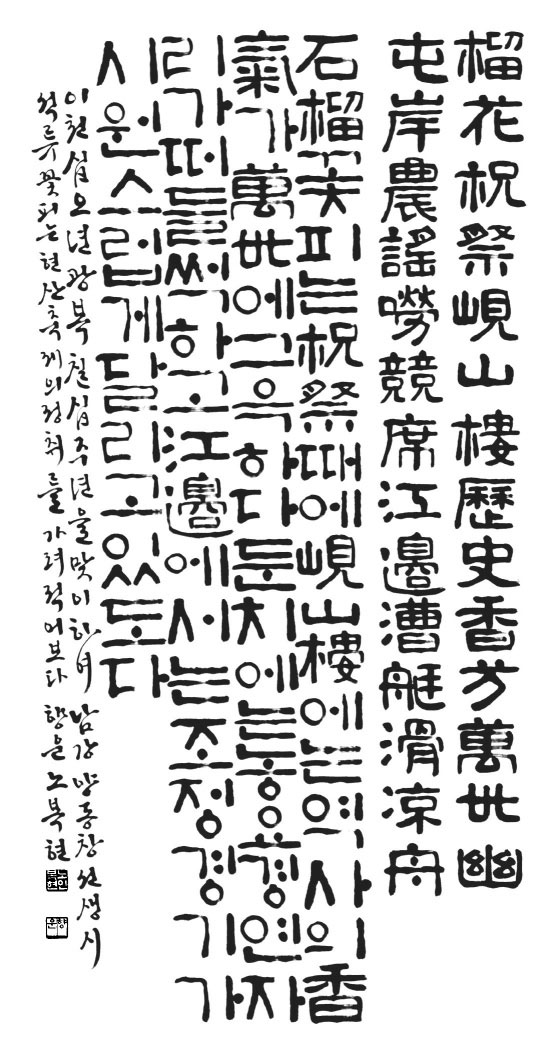 榴花祝祭峴山樓歷史香芳萬世幽
屯岸農謠嘮競席江邊漕艇滑涼舟
石榴꽃피는祝祭때에峴山樓에는역사의香
氣가萬世에그윽하다둔치에는농요경연자
리가떠들썩하고江邊에서는조정경기가
시원스럽게달리고있도다
이천십오년광복칠십주년을맞이하여 남강양동창선생시
석류꽃피는현산축제의정취를가려적어보다 향운노복현